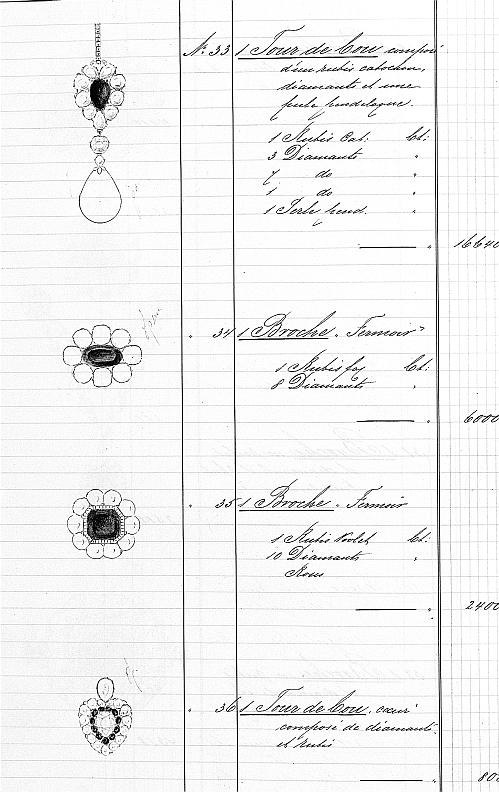 № 33 1 Tour de Cou composé
d'un rubis cabochon,
diamants et une
perle pendeloque.
1 Rubis Cab: Ct:
3 Diamants "
7 do "
1 do "
1 Perle pend. "
" 16640
" 34 1 Broche. Fermoir
1 Rubis Ct:
8 Diamants "
" 6000
" 35 1 Broche. Fermoir
1 Rubis Ct:
10 Diamants "
Roses
" 2400
" 36 1 Tour de Cou, cœur
composé de diamants
et rubis
" 80